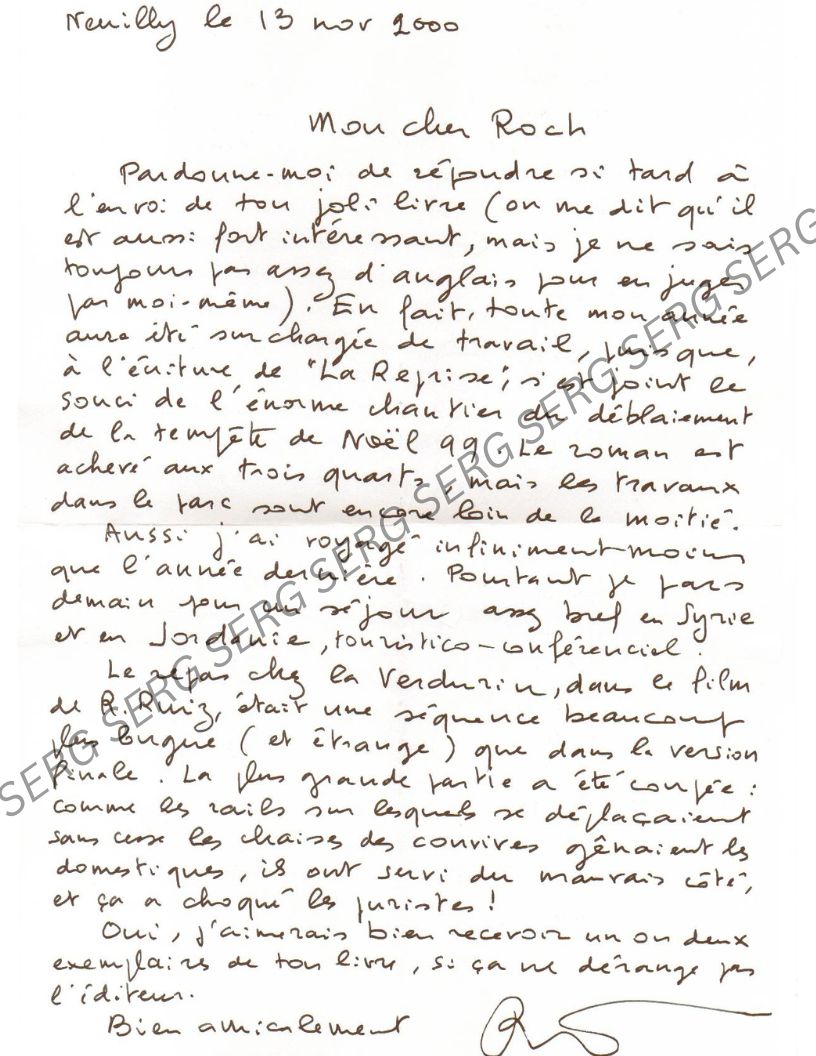 Neuilly le 13 nov 2000
Mon cher Roch
Pardonne-moi de répondre si tard à
l'envoi de ton joli livre (on me dit qu'il
est aussi fort intéressant, mais je ne sais
toujours pas assez d'anglais pour en juger
par moi-même). En fait, toute mon année
aura été surchargée de travail, puisque,
à l'écriture de "La Reprise", s'est joint le
souci de l'énorme chantier du déblaiement
de la tempête de Noël 99. Le roman est
achevé aux trois quarts, mais les travaux
dans le parc sont encore loin de la moitié.
Aussi j'ai voyagé infiniment moins
que l'année dernière. Pourtant je pars
demain pour un séjour assez bref en Syrie
et en Jordanie, touristico-conférenciel.
Le repas chez la Verdurin, dans le film
de R. Ruiz, était une séquence beaucoup
plus longue (et étrange) que dans la version
finale. La plus grande partie a été coupée :
comme les rails sur lesquels se déplaçaient
sans cesse les chaises des convives gênaient les
domestiques, ils ont servi du mauvais côté,
et ça a choqué les puristes !
Oui, j'aimerais bien recevoir un ou deux
exemplaires de ton livre, si ça ne dérange pas
l'éditeur.
Bien amicalement
SERG SERG SERG SERG SERG SERG SERG SERG SERG SERG SERG